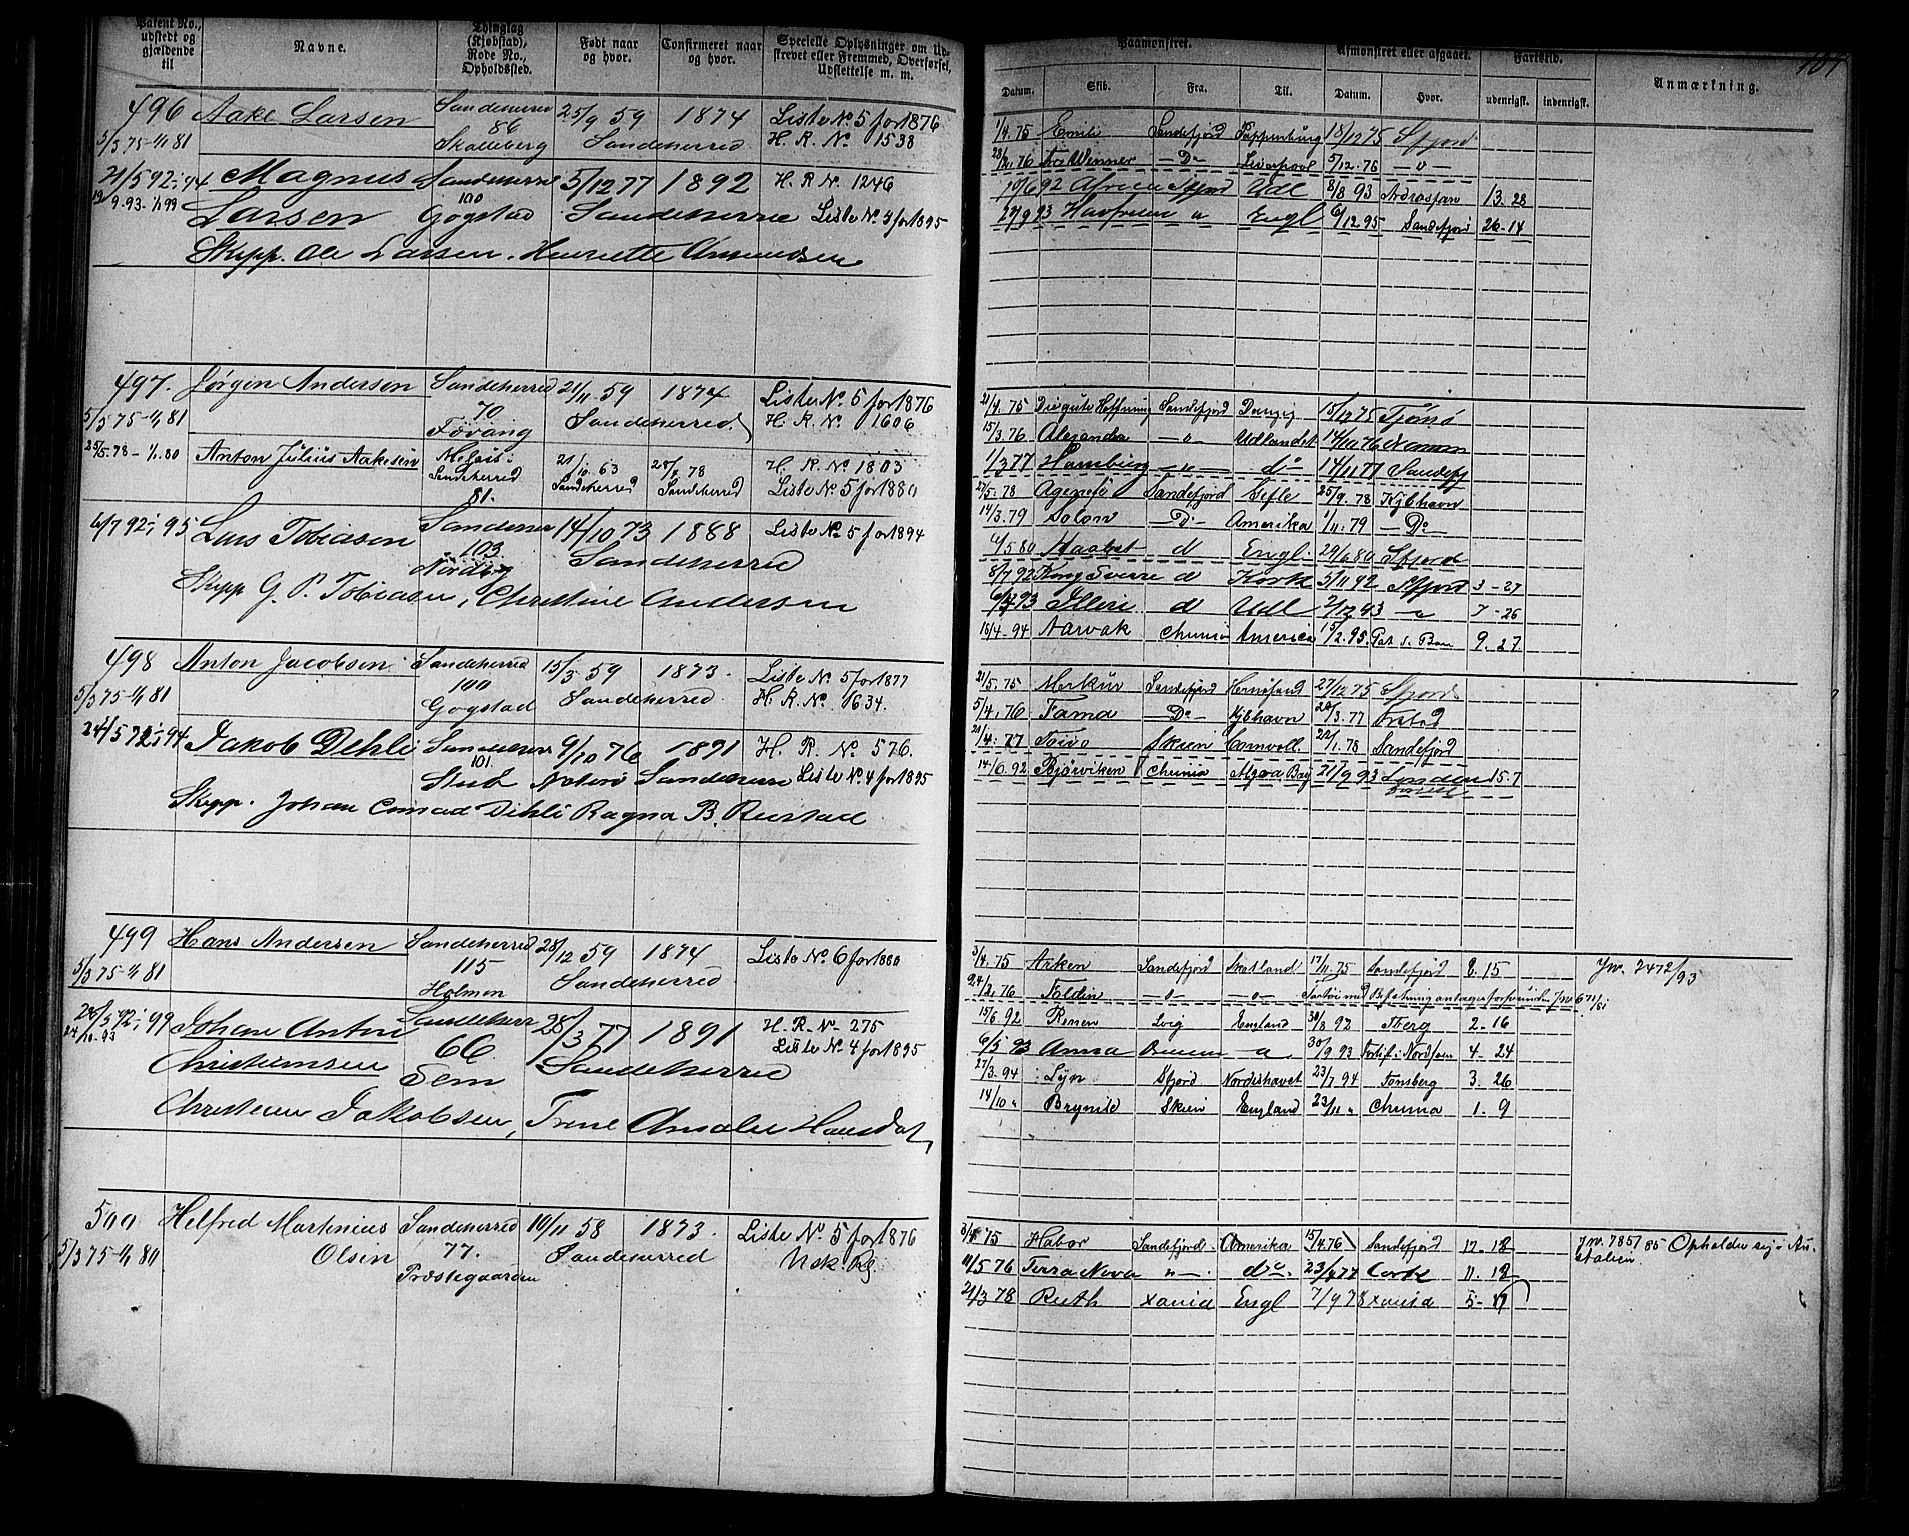 Patent No., udstedt og gjældende til
Navne.
Thinglag (Kjøbstad), Rode No., Opholdssted.
Født naar og hvor.
Confirmeret naar og hvor.
Specielle Oplysninger om Udskrevet eller Fremmed, Overførsel, Udslettelse m. m.
496 Aake Larsen Sandeherred 25/9 59 1874 Liste No 5 for 1876
86
5/3 75-1/1 81 Skolleberg Sandeherred H. R. No 1538
21/5 92 i 94 Magnus Sandeherre 5/12 77 1892 H. R No. 1246
100
9-93-1/1 99 Larsen Gogstad Sandeherre Liste No. 3 for 1895
Skipp. Ole Larsen. Henriette Amundsen
497. Jørgen Andersen Sandeherred 21/11 59 1874 Liste No. 5 for 1876
70
5/3 75-1/1 81 Fövang Sandeherred. H. R. No 1606
25/5.78-1/1.80 Anton Julius Aakesen Sandeherred 21/10.63 Sandeherred 78 Sandeherred H. R. No 1803
81. Liste No. 5 for 1880
6/7 92 i 95 Lars Tobiasen 14/10 73 1888 Liste No. 5 for 1894
103 Sandeherred
Nordby
Skipp G. P. Tobiasen, Christine Andersen
498 Anton Jacobsen Sandeherred 15/3 59 1873. Liste No 5 for 1877
100
5/3 75-1/1 81 Gogstad Sandeherred H. R. No. 1634.
24/5 92 i 94 Jakob Dehli 9/10 76 1891 H. R. No. 576.
101.
Stub Nøterø Sandeherre Liste No. 4 for 1895
Skipp. Johan Conrad Dehli Ragna B. Rustad
499 Hans Andersen Sandeherred 28/12 59 1874 Liste No. 6 for 1880
115
5/3 75-1/1 81 Holmen Sandeherred
92 i 99 Johan Anton Sandeherr 28/3 77 1891 H. R. No 275
66 Liste No. 4 for 1895
Christiansen Sem Sandeherre
Christian Jakobsen, Trine Amalie Hansdat
500 Helfred Martinius Sandeherred 10/11 58 1873. Liste No. 5 for 1876
Olsen 77.
5/3 75-1/1 80 Præstegaarden Sandeherred
Paamønstret.
Afmønstret eller afgaaet.
Fartstid.
Anmærkning.
Datum. Skib. Fra. Til. Datum. Hvor. udenrigsk. indenrigsk.
1/4.75 Emilie Sandefjord Pappenburg 18/12 75 Sfjord
76 Wenner -Do- Liverpool 5/12.76 -o-
10/6 92 Africa Sfjord Udl 8/8 93 13. 28
27/9 93 Havfruen Engl 6/12 95 Sandefjord 26-14
21/4.75 Die gute Hoffnung Sandefjord Danzig 15/12 75 Tjömö
15/3.76 Alexandra -o- Udlandet 14/11 76
1/3 77 Hamburg -o- do 14/11 77 Sandefj
27/5.78 Agenete Sandefjord Gefle 25/9.78 Kjøbhavn
14/3.79 Solon -Do- Amerika 1/11.79 -Do
4/5 80 Haabet d Engl. 29/6 80 Sfjord
8/7 92 Kong Sverre d Kork 5/11 92 Sfjord 3-27
93 Illeri d Udl 2/12 93 7-26
16/4-94 Narvak Chrinia America 15/2.95. 9. 27
21/5.75 Merkur Sandefjord Hernøsand 27/12 75 Sfjord
5/4.76 Fama -Do- Kjøbhavn 20/3.77 Frstad
4.77 Toivo Skien Cornvall. 22/1.78 Sandefjord
14/6.92 Bjørviken Chrinia 21/9 93 15.7
3/4.75 Arken Sandefjord Skotland 17/11.75 Sandefjord 8. 15 Jn. 2472/93
76 Foldin -o- -o-
15/6 92 Renen Lvig England 30/8 92 Tberg 2-16
6/5 93 Anna Bremen 30/9 93 Forlist i Nordsøen 4-24
27/3.94 Lyn Sfjord Nordishavet 23/7 94 Tønsberg 3. 26
14/10 " Brynild Skien England 23/11 " Chrinia 1. 9
75 Habor Sandefjord. Amerika 15/4.76 Sandefjord 12-18 Jn. 785/85 Opholder sig i Au-
stalien.
11/5 76 Terra Nova "- do. 23/4 77 Cork 11. 12
21/3 78 Ruth Xania Engl 7/9 78 Xania 5-